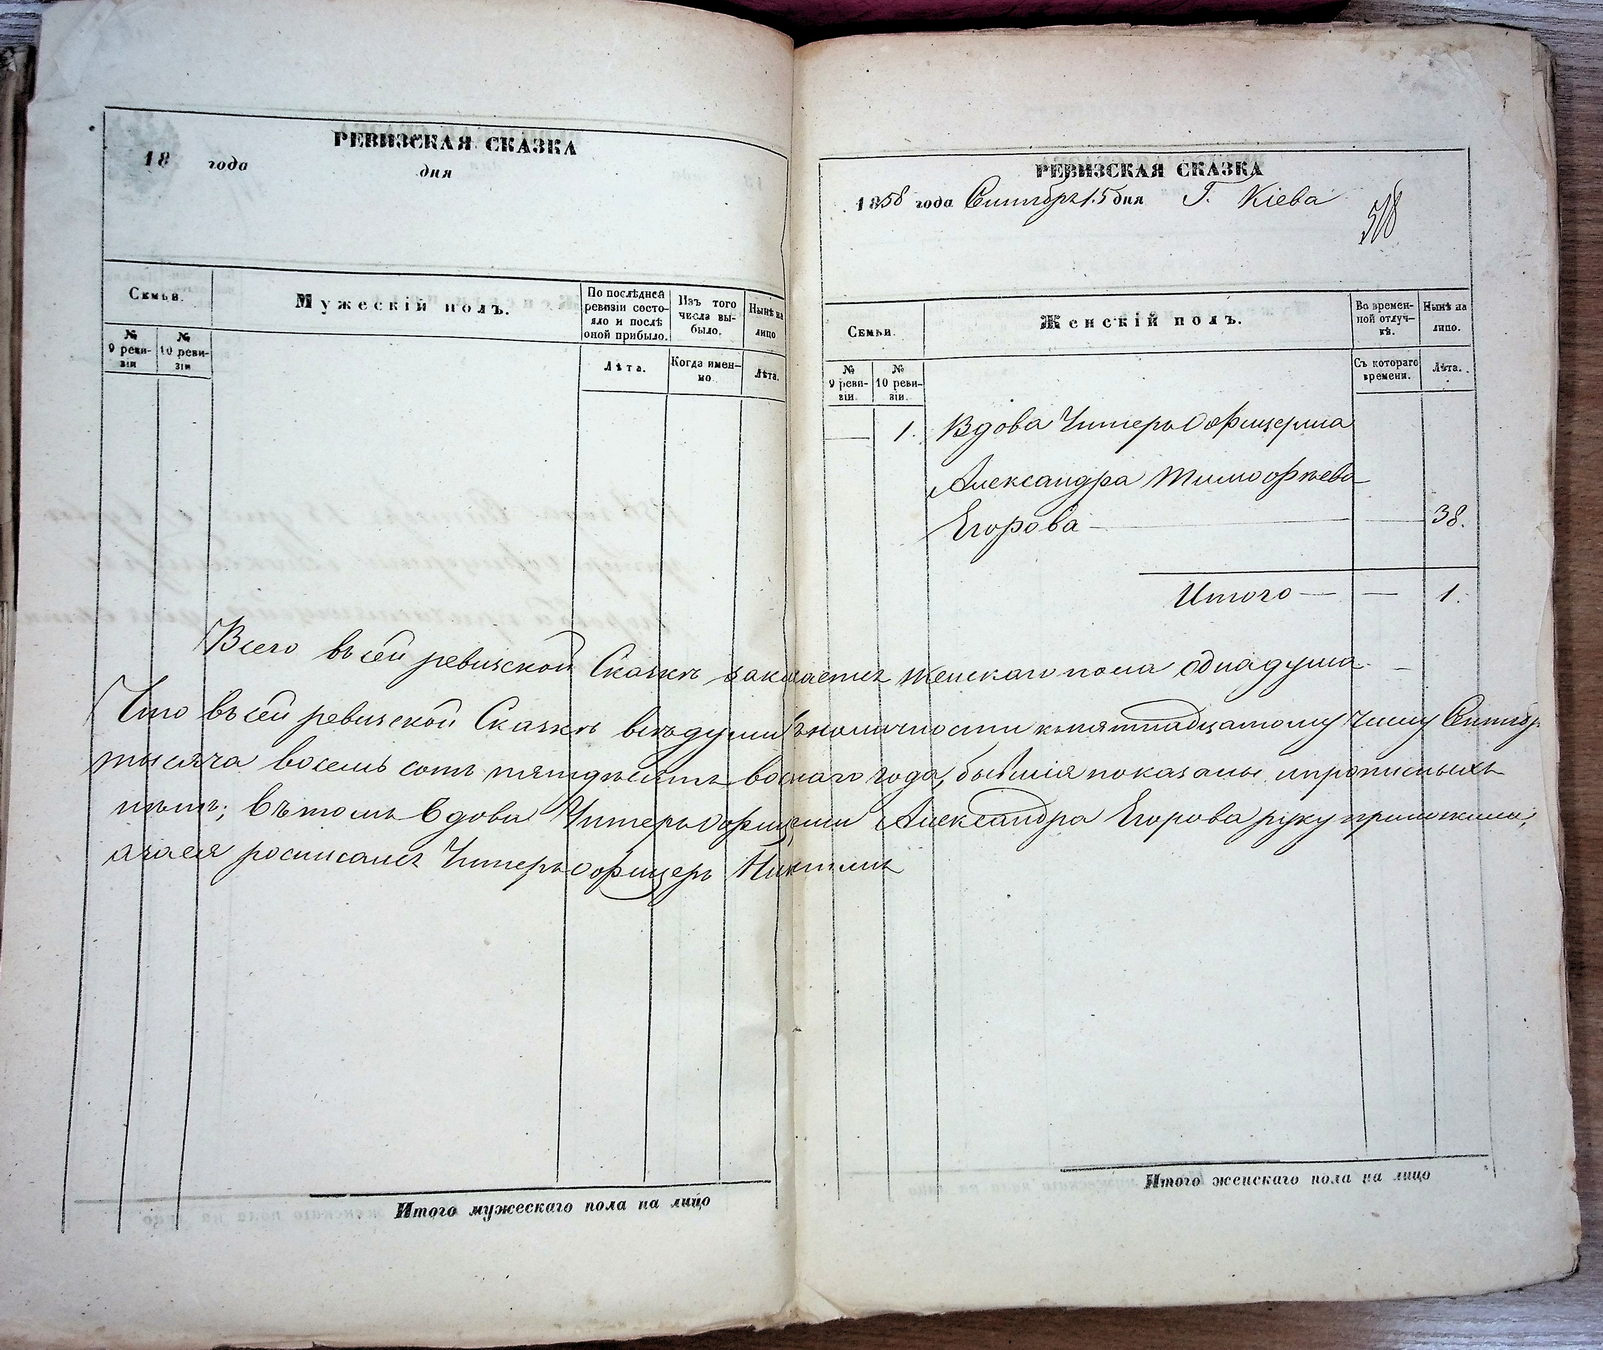 РЕВИЗСКАЯ СКАЗКА
18 года дня
Семьи.
Мужескій полъ.
По послѣдней ревизіи состояло и послѣ оной прибыло.
Изъ того числа выбыло.
Нынѣ на лицо
№ 9 ревизіи
№ 10 ревизіи
Лѣта.
Когда именно
Лѣта.
Итого мужескаго пола на лицо
РЕВИЗСКАЯ СКАЗКА
1858 года Сентября 15 дня Г. Кіева
518
Семьи.
Женскій полъ.
Во временной отлучкѣ.
Нынѣ на лицо.
№ 9 ревизіи.
№ 10 ревизіи.
Съ котораго времени.
Лѣта.
1. Вдова Унтеръ Офицерша
Александра Тимофѣева
Егорова — — 38.
Итого — — 1.
Всего въ сей ревизской Сказкѣ заключается женскаго пола одна душа. —
Что въ сей ревизской Сказкѣ всѣ души въ наличности къ пятнадцатому числу Сентябр
тысяча восемь сотъ пятдесятъ восмаго года, бывшія показаны, и прописныхъ
нѣтъ; въ томъ вдова Унтеръ офицерша Александра Егорова руку приложила,
а за нея росписался Унтеръ офицеръ
Итого женскаго пола на лицо